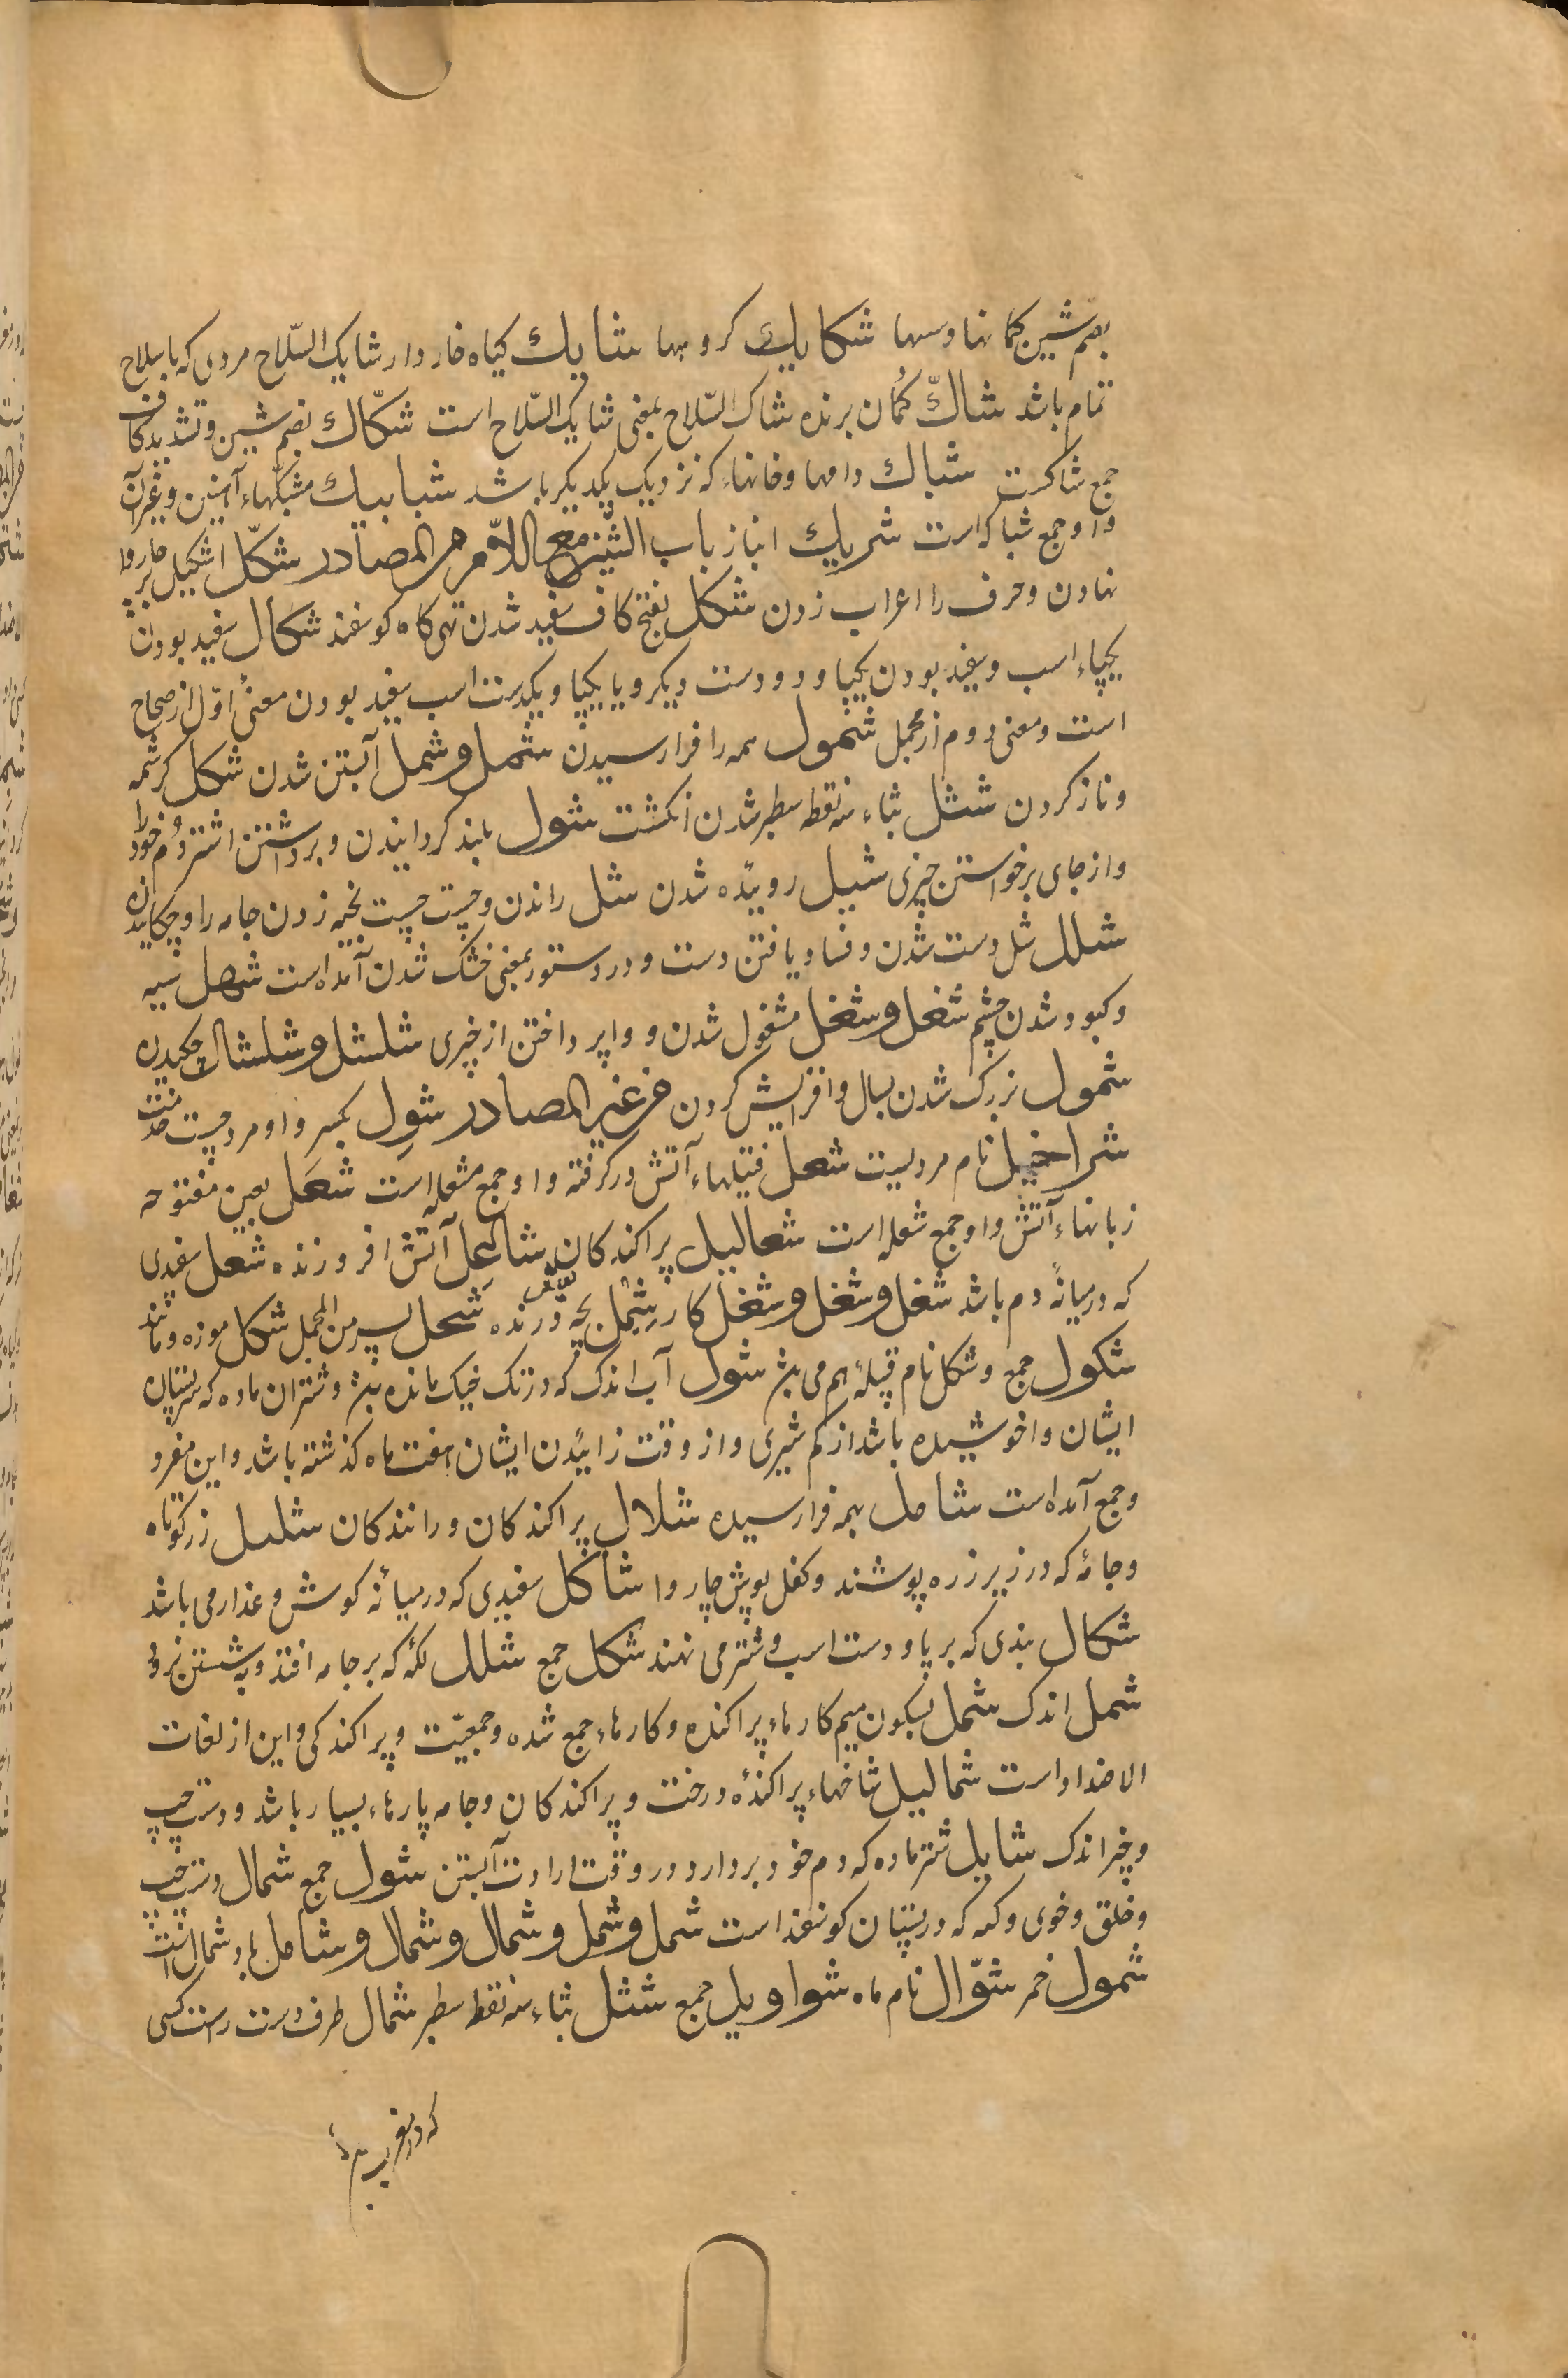 بضم شین کمانها وسهها شکایك کروهها شایك کیاه خار دار شایک السّلاح مردی که با سلاح
تمام باشد شاكّ کمان برنده شاک السّلاح بمعنی شایک السّلاح است شکّاك بضم شین وتشدید کاف
جمع شاکست شباك دامها وخانهاء که نزدیک یکدیکر باشد شبابیك مشبکهاء آهنین وغیر آن
واو جمع شباکه است شریك انباز باب الشّین مع اللاّم من المصادر شکّل اشکیل بر چاروا
نهادن وحرف را اعراب زدن شکل بفتح کاف سفید شدن تهی کاه کوسفند شکال سفید بودن
یکپاء اسب وسفید بودن یکپا ودو دست دیکر ویا یکپا ویکدست اسب سفید بودن معنیٔ اوّل از صحاح
است ومعنی دوم از مجمل شمول همه را فرا رسیدن شمل وشمل آبستن شدن شکل کرشمه
وناز کردن شثل بثاء سه نقطه سطبر شدن انکشت شول بلند کردانیدن وبرداشتن اشتر دُم خود را
واز جای برخواستن چیزی شیل روییده شدن شل راندن وچست چست بخیه زدن جامه را وچکانیدن
شلل شل دست شدن وفساد یافتن دست ودر دستور بمعنی خشک شدن آمده است شهل سیه
وکبود شدن چشم شغل وشغل مشغول شدن و واپرداختن از چیزی شلشل وشلشال چکیدن
شمول بزرک شدن بسال وافزایش کردن من غیر المصادر شول بکسر واو مرد چست خدمت
شراخیل نام مردیست شعل فتیلهاء آتش درکرفته واو جمع مشعله است شعَل بعین مفتوحه
زبانهاء آتش واو جمع شعله است شعالیل پراکندکان شاعل آتش افروزنده شعل سفیدی
که در میانهٔ دم باشد شغل وشغل وشغل کار شبل بچه درنده شحل پسر من المجمل شکل موزه ومانند
شکول جمع وشکل نام قبیلهٔ هم می بشد شول آب اندک که در تک خیک مانده بشد وشتران ماده که پستان
ایشان واخوشیده باشد از کم شیری واز وقت زائیدن ایشان هفت ماه کذشته باشد واین مفرد
وجمع آمده است شامل بهمه فرا رسیده شلال پراکندکان ورانندکان شلیل زره کوتاه
وجامهٔ که در زیر زره پوشند وکفل پوش چاروا شاکل سفیدی که در میانهٔ کوش وعذار می باشد
شکال بندی که بر پا ودست اسب وشتر می نهند شکل جمع شلل لکهٔ که بر جامه افتد وبه شستن نرود
شمل اندک شمل بسکون میم کارهاء پراکنده وکارهاء جمع شده وجمعیّت وپراکندکی واین از لغات
الاضداد است شمالیل شاخهاء پراکندهٔ درخت وپراکندکان وجامه پارهاء بسیار باشد ودست چپ
وچیز اندک شایل شتر ماده که دم خود بردارد در وقت ارادت آبستن شول جمع شمال دست چپ
وخلق وخوی وکسه که در پستان کوسفند است شمل وشمل وشمال وشمال وشامل باد شمال است
شمول خمر شوّال نام ماه شواویل جمع شثل بثاء سه نقطه سطبر شمال طرف دست راست کسی